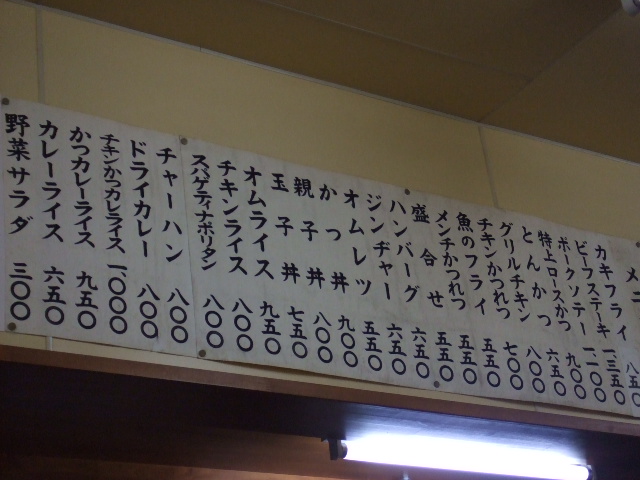 メ
カキフライ 八五〇
ビーフステーキ 一三五〇
ポークソテー 一一〇〇
特上ロースかつ 九〇〇
とんかつ 六五〇
グリルチキン 八〇〇
チキンかつれつ 七〇〇
魚のフライ 五五〇
メンチかつれつ 五五〇
盛合せ 五五〇
ハンバーグ 六五〇
ジンヂャー 六五〇
オムレツ 五五〇
かつ丼 九〇〇
親子丼 八〇〇
玉子丼 七五〇
オムライス 九五〇
チキンライス 八〇〇
スパゲティナポリタン 八〇〇
チャーハン 八〇〇
ドライカレー 八〇〇
チキンかつカレライス 一〇〇〇
かつカレーライス 九五〇
カレーライス 六五〇
野菜サラダ 三〇〇